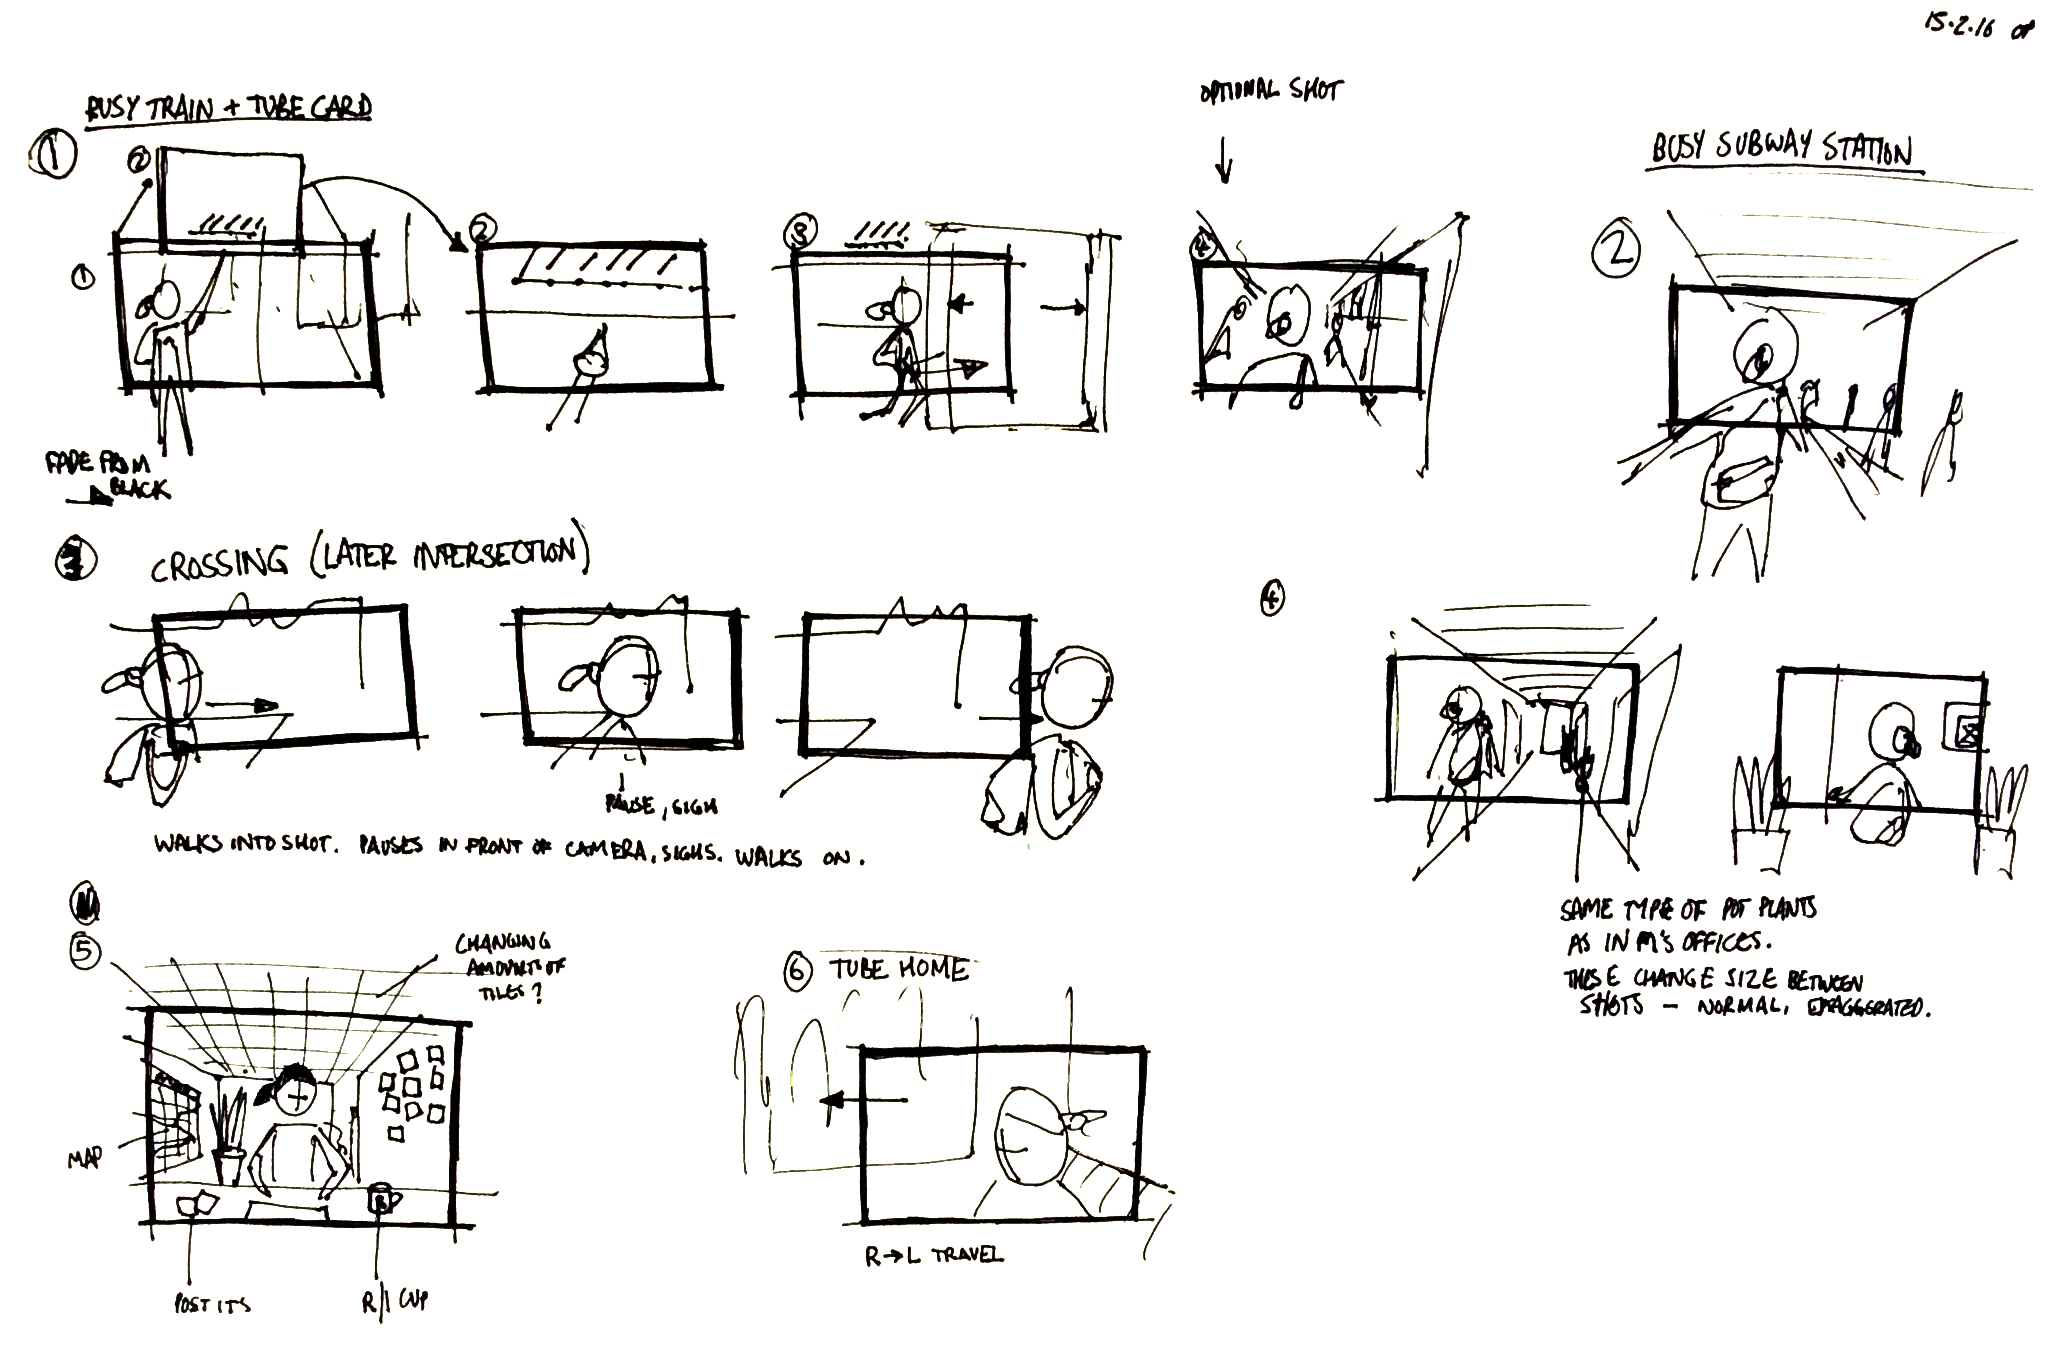 15.2.16 OP
BUSY TRAIN + TUBE CARD
1
2
1
2
3
OPTIONAL SHOT
4
BUSY SUBWAY STATION
2
FADE FROM
BLACK
3
CROSSING (LATER INTERSECTION)
PAUSE, SIGH
WALKS INTO SHOT. PAUSES IN FRONT OF CAMERA, SIGHS. WALKS ON.
4
SAME TYPE OF POT PLANTS
AS IN M'S OFFICES.
THESE CHANGE SIZE BETWEEN
SHOTS — NORMAL, EXAGGERATED.
5
CHANGING
AMOUNTS OF
TILES?
MAP
POST ITS
R/I CUP
6 TUBE HOME
R→L TRAVEL